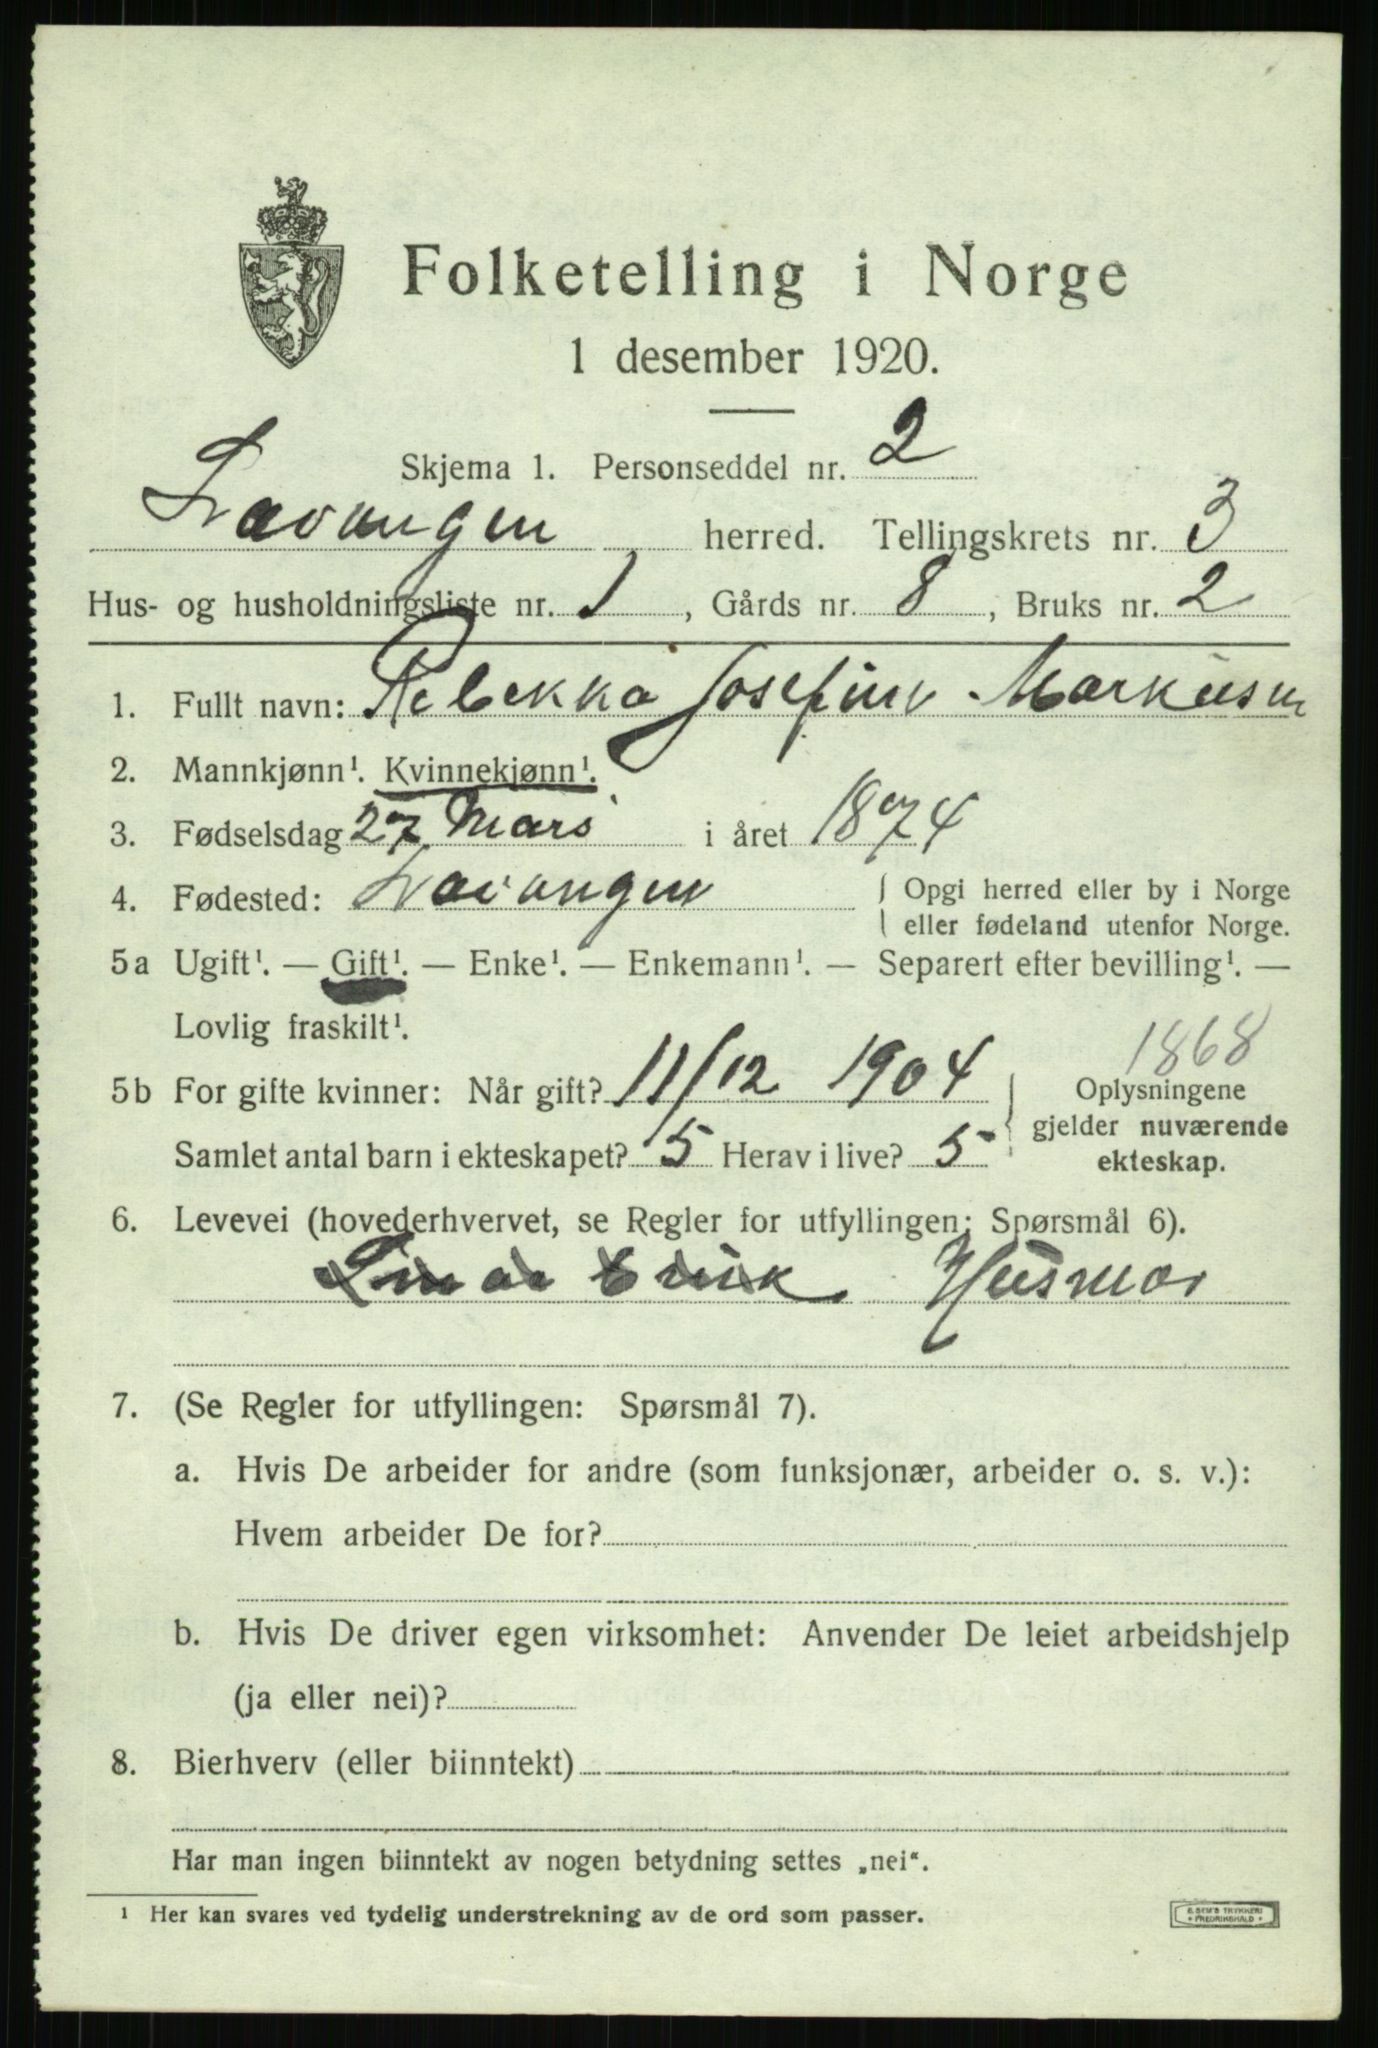 Folketelling i Norge
1 desember 1920.
Skjema 1. Personseddel nr. 2
Lavangen herred. Tellingskrets nr. 3
Hus- og husholdningsliste nr. 1, Gårds nr. 8, Bruks nr. 2
1. Fullt navn: Rebekka Josefine Markusen
2. Mannkjønn¹. Kvinnekjønn¹.
3. Fødselsdag 27 Mars i året 1874
4. Fødested: Lavangen { Opgi herred eller by i Norge
eller fødeland utenfor Norge.
5a Ugift¹. — Gift¹. — Enke¹. — Enkemann¹. — Separert efter bevilling¹. —
Lovlig fraskilt¹.
1868
5b For gifte kvinner: Når gift? 11/12 1904 } Oplysningene
gjelder nuværende
Samlet antal barn i ekteskapet? 5 Herav i live? 5 ekteskap.
6. Levevei (hovederhvervet, se Regler for utfyllingen; Spørsmål 6).
Husmor
7. (Se Regler for utfyllingen: Spørsmål 7).
a. Hvis De arbeider for andre (som funksjonær, arbeider o. s. v.):
Hvem arbeider De for?
b. Hvis De driver egen virksomhet: Anvender De leiet arbeidshjelp
(ja eller nei)?
8. Bierhverv (eller biinntekt)
Har man ingen biinntekt av nogen betydning settes „nei“.
¹ Her kan svares ved tydelig understrekning av de ord som passer.
E. SEM'S TRYKKERI
FREDRIKSHALD